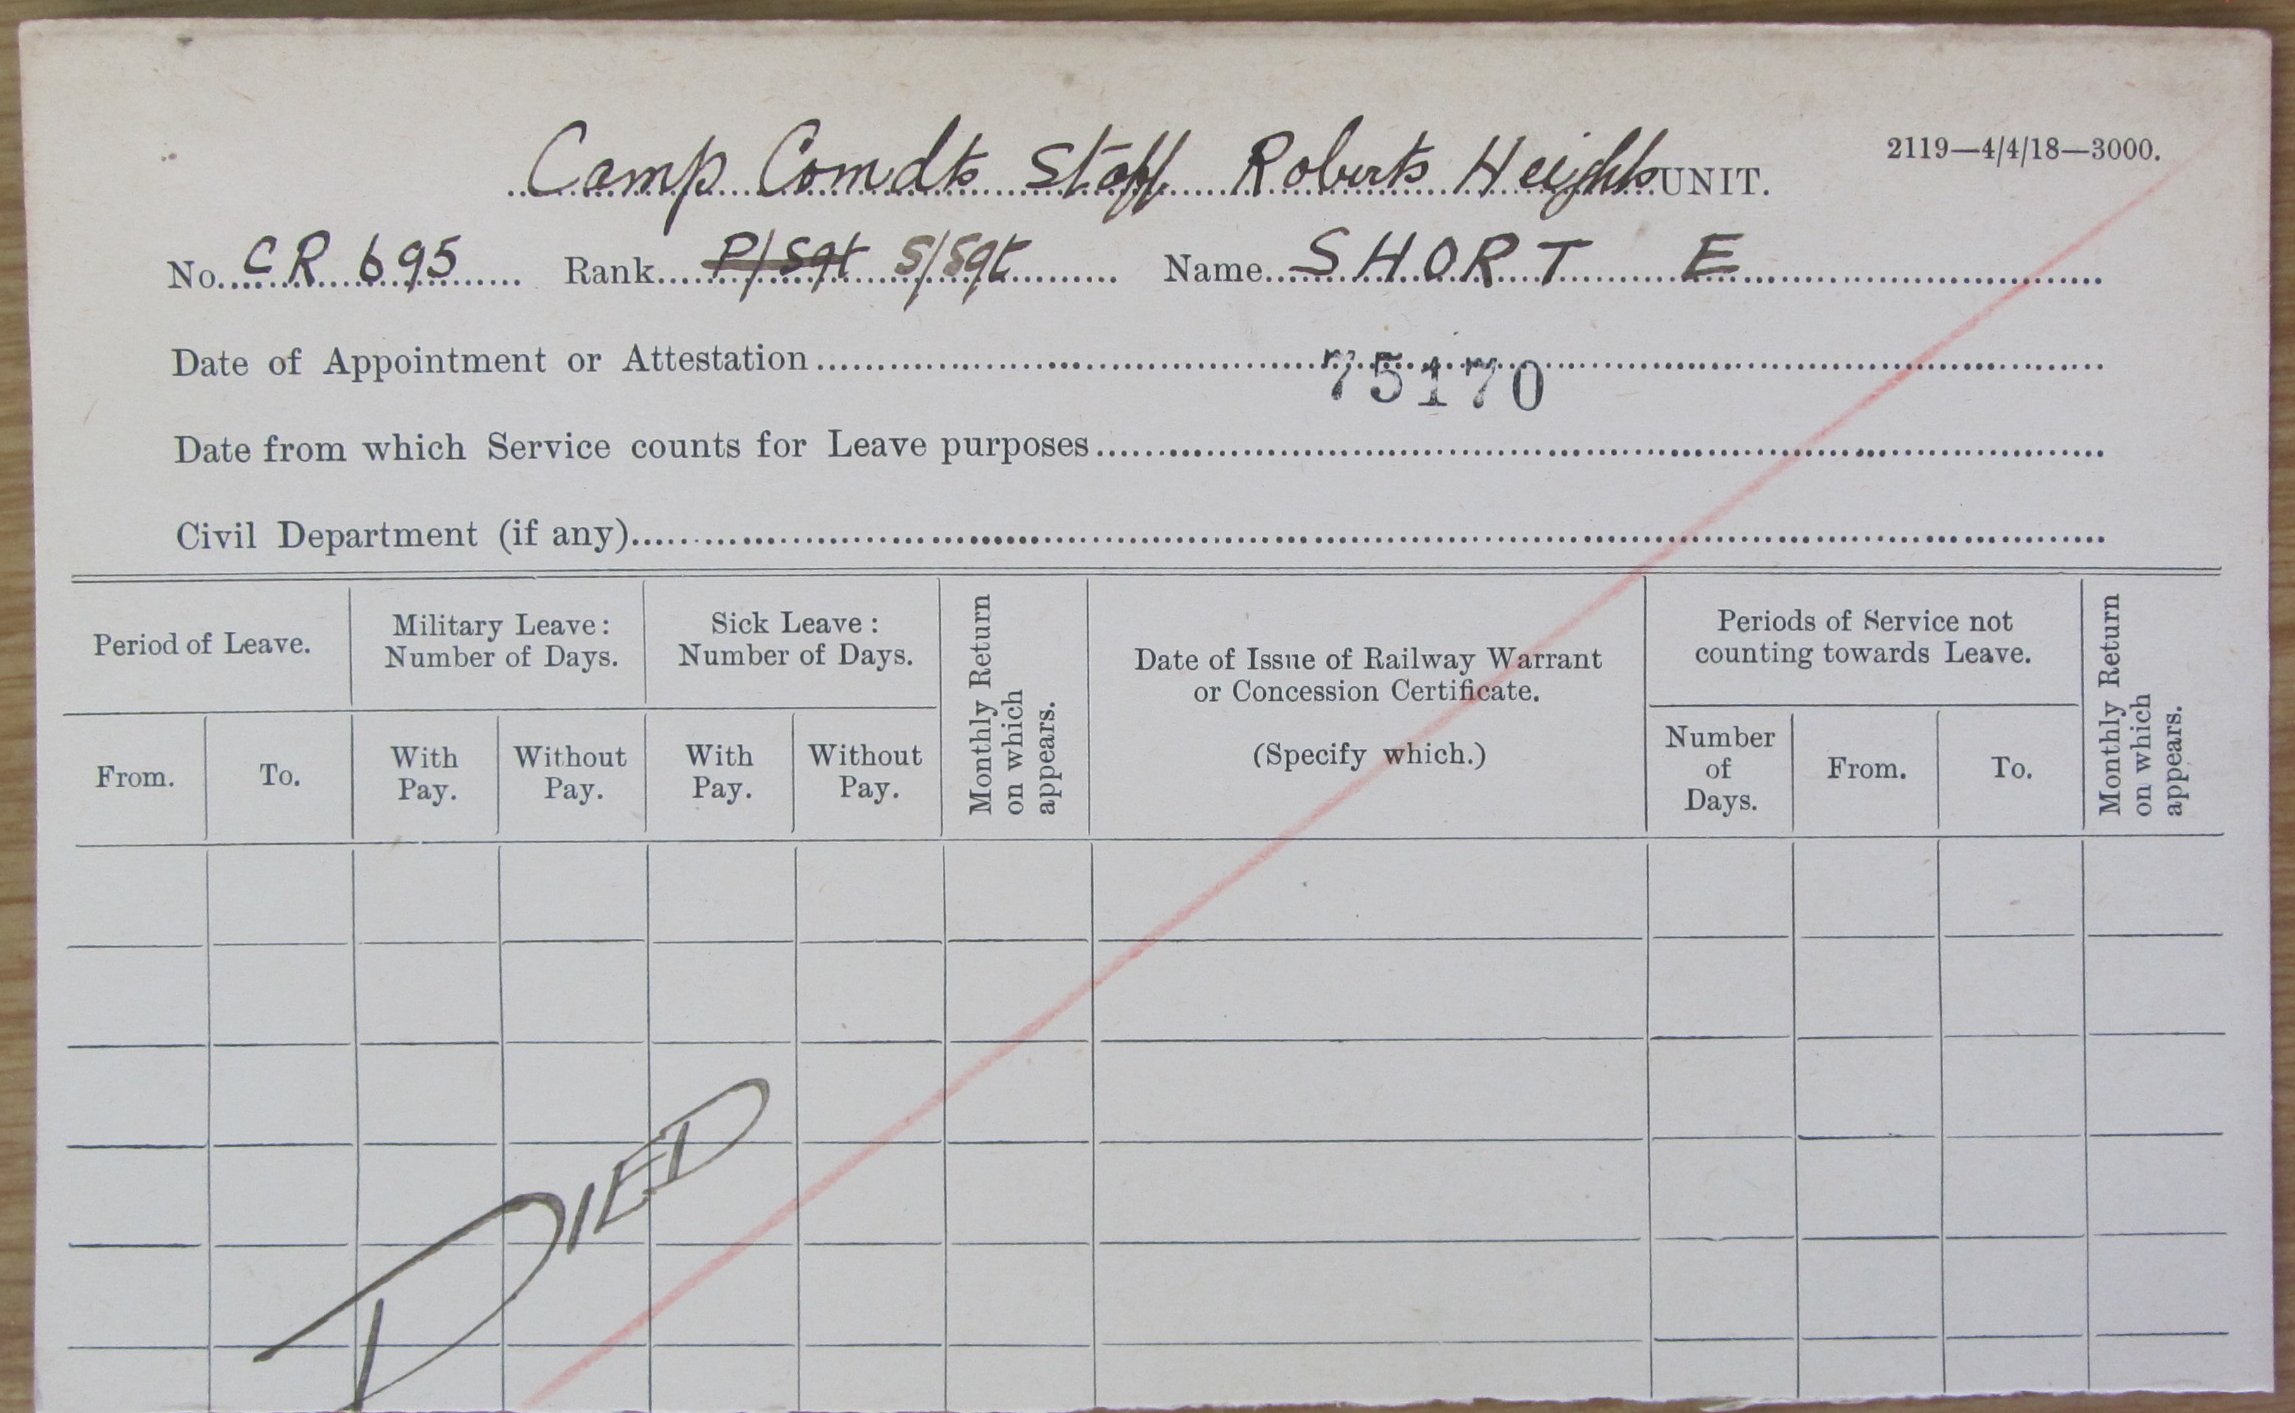 Camp Comdts Staff Roberts Heights UNIT.
2119—4/4/18—3000.
No. CR 695 Rank P/Sgt S/Sgt Name SHORT E
Date of Appointment or Attestation
75170
Date from which Service counts for Leave purposes
Civil Department (if any)
Period of Leave.
From.
To.
Military Leave:
Number of Days.
With
Pay.
Without
Pay.
Sick Leave:
Number of Days.
With
Pay.
Without
Pay.
Monthly Return
on which
appears.
Date of Issue of Railway Warrant
or Concession Certificate.
(Specify which.)
Periods of Service not
counting towards Leave.
Number
of
Days.
From.
To.
Monthly Return
on which
appears.
DIED